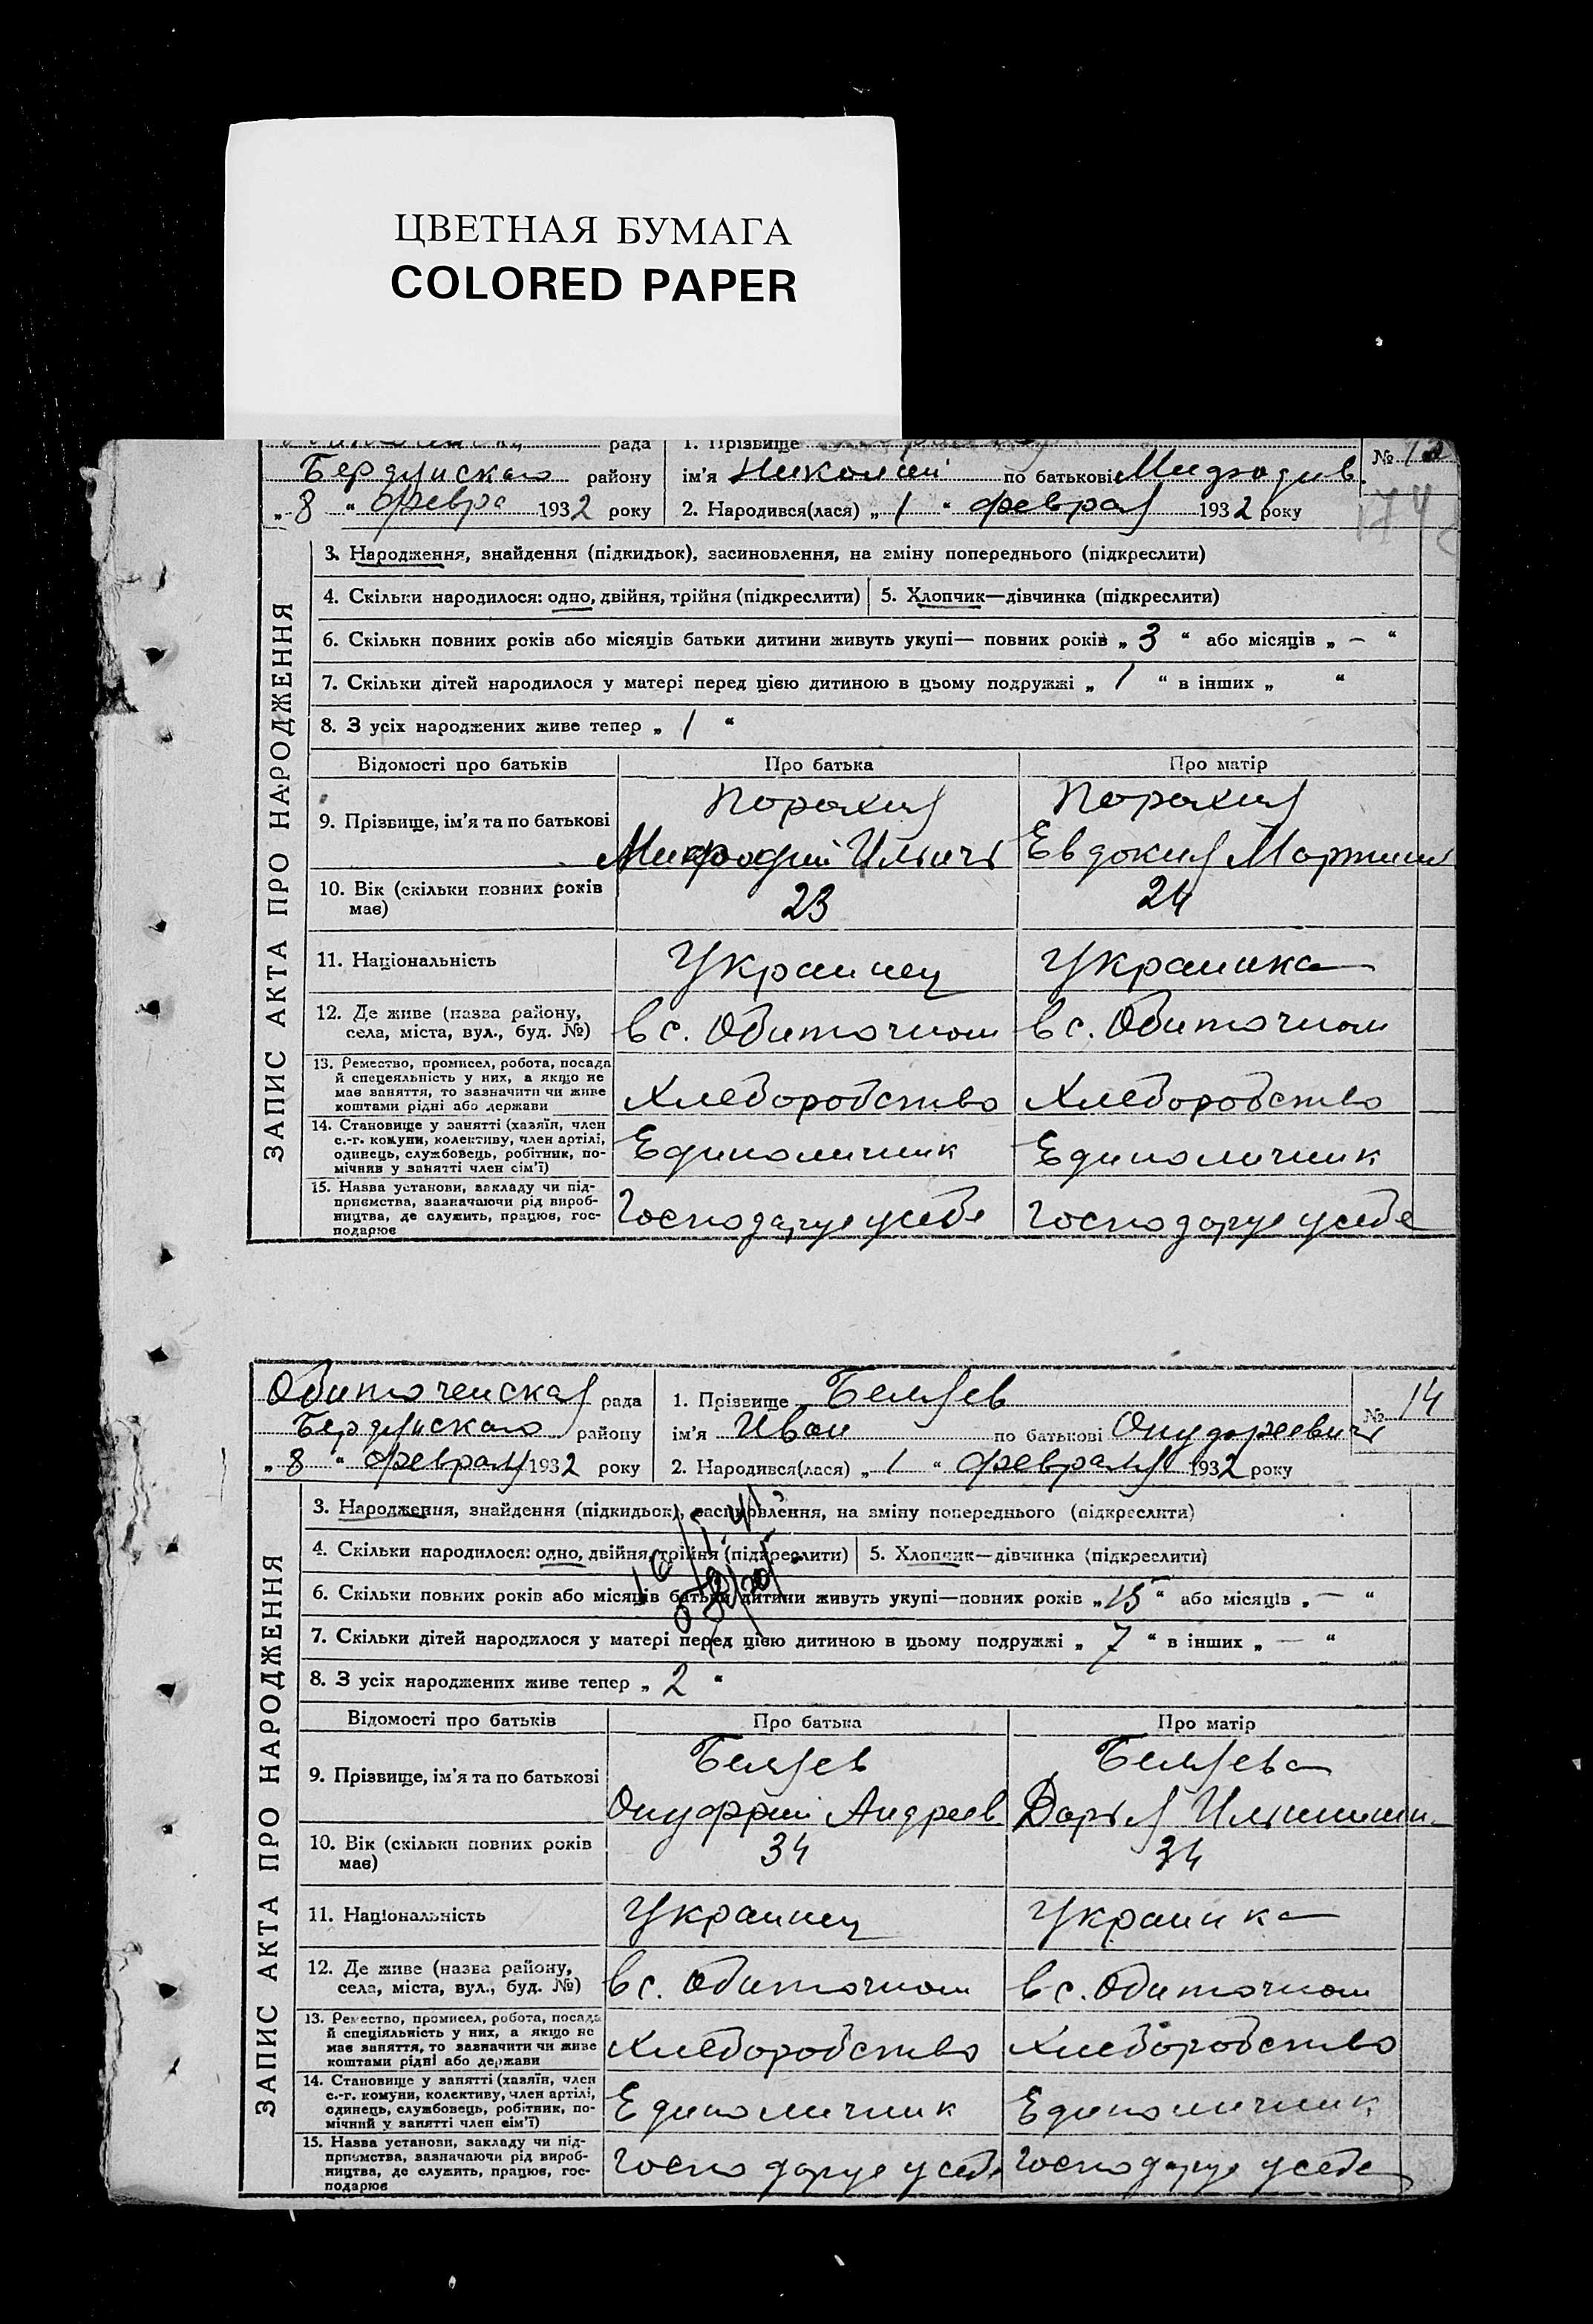 ЦВЕТНАЯ БУМАГА
COLORED PAPER
рада 1. Прізвище №
Бердянскаго району ім'я Николай по батькові Мифодив.
„ 8 “ февра 1932 року 2. Народився(лася) „ 1 “ февраля 1932 року
ЗАПИС АКТА ПРО НАРОДЖЕННЯ
3. Народження, знайдення (підкидьок), засиновлення, на зміну попереднього (підкреслити)
4. Скільки народилося: одно, двійня, трійня (підкреслити) 5. Хлопчик—дівчинка (підкреслити)
6. Скільки повних років або місяців батьки дитини живуть укупі— повних років „ 3 “ або місяців „ – “
7. Скільки дітей народилося у матері перед цією дитиною в цьому подружжі „ 1 “ в інших „ “
8. З усіх народжених живе тепер „ 1 “
Відомості про батьків Про батька Про матір
9. Прізвище, ім'я та по батькові
Мифодий Ильичъ Евдокия Мартин
10. Вік (скільки повних років
має) 23 24
11. Національність Украинец Украинка
12. Де живе (назва району,
села, міста, вул., буд. №) в с. Обиточном в с. Обиточном
13. Ремество, промисел, робота, посада
й спецеяльність у них, а якщо не
має заняття, то зазначити чи живе
коштами рідні або держави Хлеборобство Хлеборобство
14. Становище у занятті (хазяїн, член
с.-г. комуни, колективу, член артілі,
одинець, службовець, робітник, по-
мічник у занятті член сім'ї) Единоличник Единоличник
15. Назва установи, закладу чи під-
приємства, зазначаючи рід вироб-
ництва, де служить, працює, гос-
подарює Господарує у себе Господарує у себе
Обиточенская рада 1. Прізвище Беляев № 14
Бердянскаго району ім'я Иван по батькові Онуфреевичъ
„ 8 “ февраля 1932 року 2. Народився(лася) „ 1 “ февраля 1932 року
ЗАПИС АКТА ПРО НАРОДЖЕННЯ
3. Народження, знайдення (підкидьок), засиновлення, на зміну попереднього (підкреслити)
4. Скільки народилося: одно, двійня, трійня (підкреслити) 5. Хлопчик—дівчинка (підкреслити)
6. Скільки повних років або місяців батьки дитини живуть укупі—повних років „ 15 “ або місяців „ – “
7. Скільки дітей народилося у матері перед цією дитиною в цьому подружжі „ 7 “ в інших „ — “
8. З усіх народжених живе тепер „ 2 “
Відомості про батьків Про батька Про матір
Беляев Беляева
9. Прізвище, ім'я та по батькові
Онуфрий Андреев Дарья Ильинишн.
10. Вік (скільки повних років
має) 34 34
11. Національність Украинец Украинка
12. Де живе (назва району,
села, міста, вул., буд. №) в с. Обиточном в с. Обиточном
13. Ремество, промисел, робота, посада
й спеціяльність у них, а якщо не
має заняття, то зазначити чи живе
коштами рідні або держави Хлеборобство Хлеборобство
14. Становище у занятті (хазяїн, член
с.-г. комуни, колективу, член артілі,
одинець, службовець, робітник, по-
мічний у занятті член сім'ї) Единоличник Единоличник
15. Назва установи, закладу чи під-
приємства, зазначаючи рід вироб-
ництва, де служить, працює, гос-
подарює Господарує у себе Господарує у себе